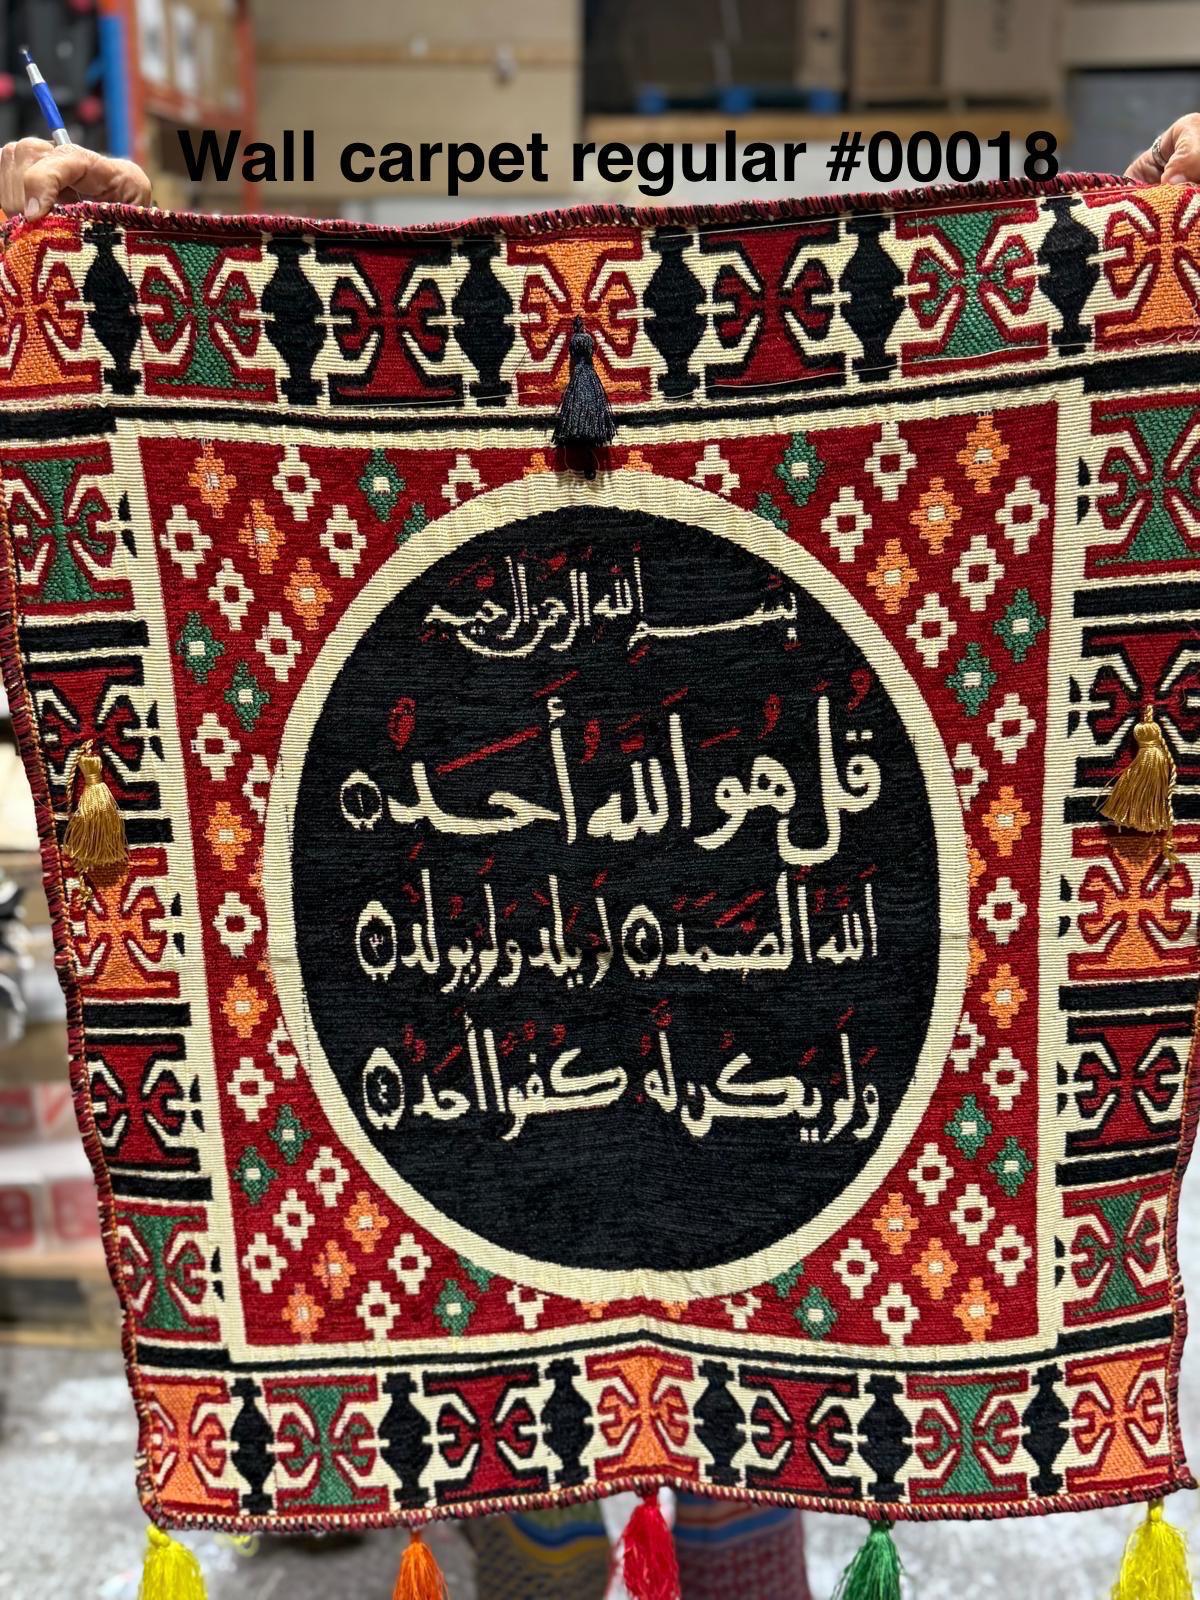 Wall carpet regular #00018
بسم الله الرحمن الرحيم
قُلْ هُوَ اللَّهُ أَحَدٌ ١
اللَّهُ الصَّمَدُ ٢ لَمْ يَلِدْ وَلَمْ يُولَدْ ٣
وَلَمْ يَكُن لَّهُ كُفُوًا أَحَدٌ ٤